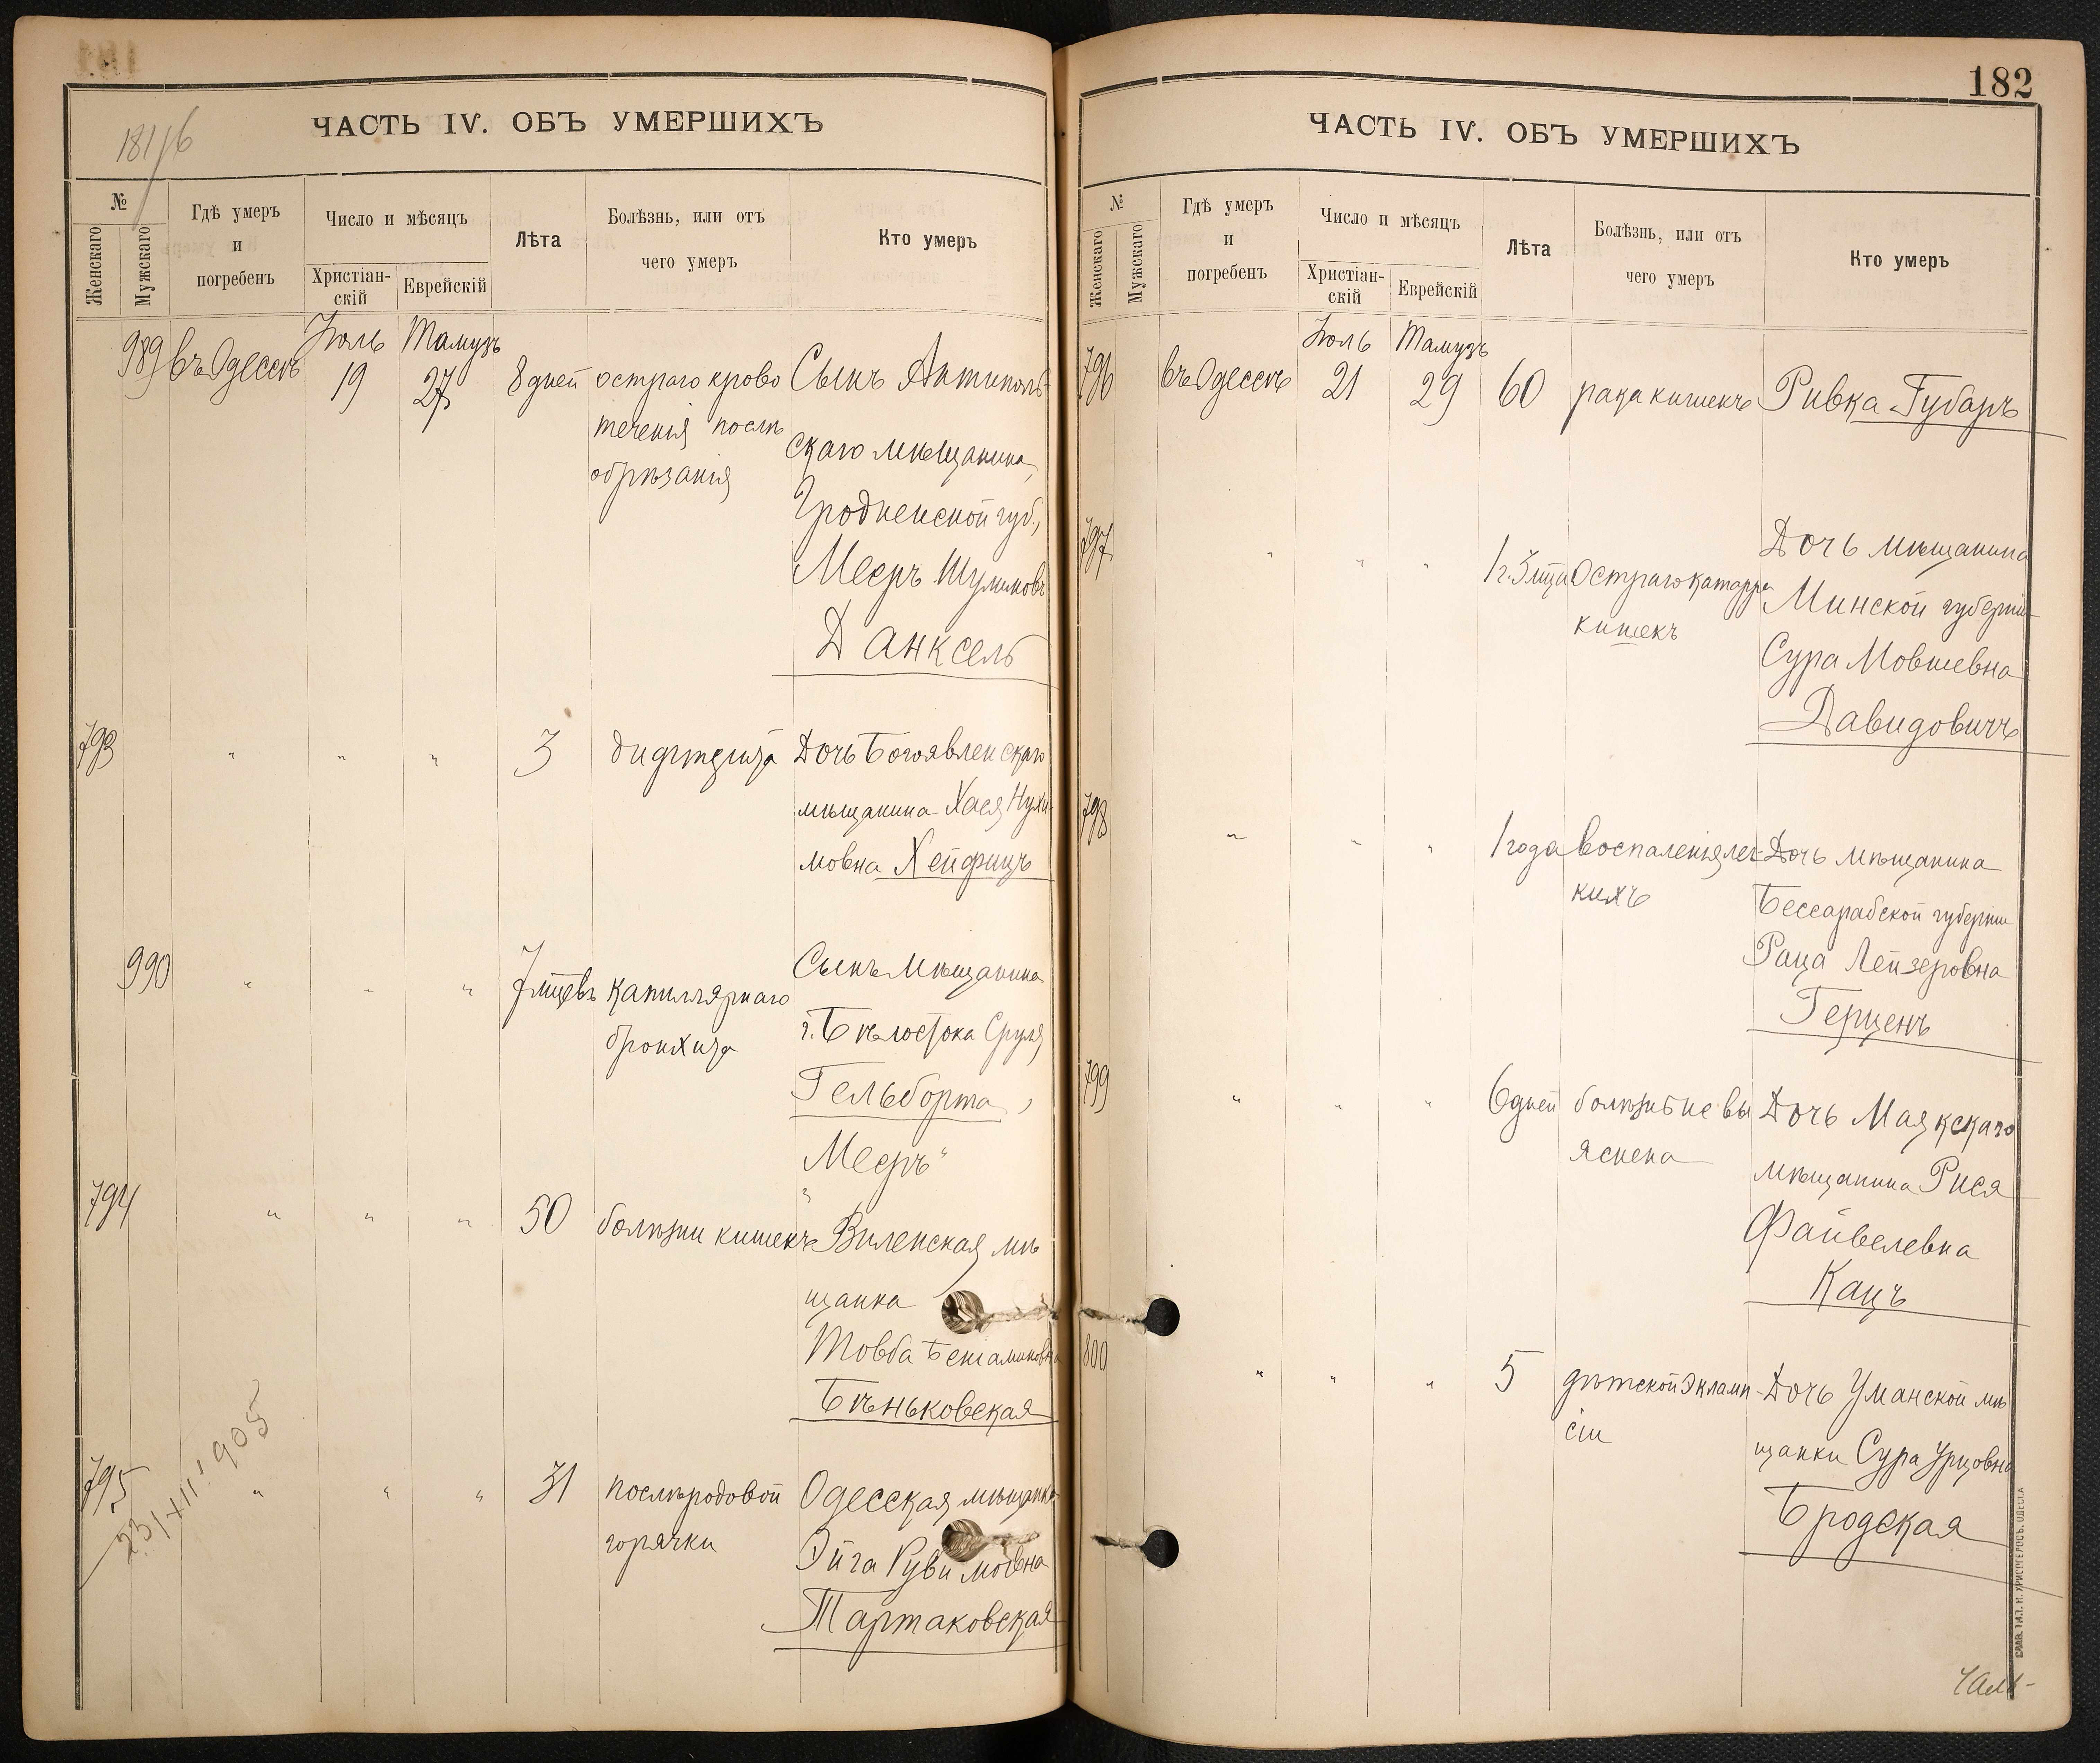 ЧАСТЬ IV. ОБЪ УМЕРШИХЪ
№
Женскаго
Мужскаго
Гдѣ умеръ
и
погребенъ
Число и мѣсяцъ
Христіан-
скій
Еврейскій
Лѣта
Болѣзнь, или отъ
чего умеръ
Кто умеръ
989 въ Одессѣ Іюль 19 Тамузъ 27 8 дней остраго крово
теченія послѣ
обрѣзанія
Сынъ Антиполь-
скаго мѣщанина,
Гродненской губ.,
Мееръ Шулимовъ
Данксель
793 " " " 3 дифтерита Дочь Богоявленскаго
мѣщанина Хася Нухи-
мовна Хейфицъ
990 " " " 7 мцевъ капиллярнаго
бронхита
Сынъ Мѣщанина
г. Бѣлостока Сруля
Гельборта,
Мееръ"
794 " " " 50 болѣзни кишекъ Виленская мѣ
щанка
Товба Беніаминовна
Бѣньковская
795 " " " 31 послѣродовой
горячки
Одесская мѣщанка
Эйга Рувимовна
Тартаковская
23/XII 905
182
ЧАСТЬ IV. ОБЪ УМЕРШИХЪ
№
Женскаго
Мужскаго
Гдѣ умеръ
и
погребенъ
Число и мѣсяцъ
Христіан-
скій
Еврейскій
Лѣта
Болѣзнь, или отъ
чего умеръ
Кто умеръ
796 въ Одессѣ Іюль 21 Тамузъ 29 60 рака кишекъ Ривка Губаръ
797 " " " 1 г. 3 мца Остраго катарра
кишекъ
Дочь мѣщанина
Минской губерніи
Сура Мовшевна
Давидовичъ
798 " " " 1 года воспаленія лег-
кихъ
Дочь мѣщанина
Бессарабской губерніи
Раца Лейзеровна
Герценъ
799 " " " 6 дней болѣзнь не вы
яснена
Дочь Маякскаго
мѣщанина Рися
Файвелевна
Кацъ
800 " " " 5 дѣтской Экламп-
сіи
Дочь Уманской мѣ
щанки Сура Урцовна
Бродская